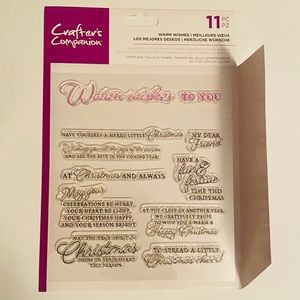 Crafter's
Companion
11 PC
PZ
WARM WISHES | MEILLEURS VŒUX
LOS MEJORES DESEOS | HERZLICHE WÜNSCHE
Warm wishes TO YOU
HAVE YOURSELF A MERRY LITTLE Christmas
MY DEAR
Friend
Wishing you all the joy of the season
AND ALL THE BEST IN THE COMING YEAR
HAVE A
fun &
festive
TIME THIS
CHRISTMAS
AT Christmas AND ALWAYS
May your
CELEBRATIONS BE MERRY,
YOUR HEART BE LIGHT,
YOUR CHRISTMAS HAPPY,
AND YOUR SEASON BRIGHT
AT THE CLOSE OF ANOTHER YEAR
WE GRATEFULLY PAUSE
TO WISH YOU A WARM &
Happy Christmas
MAY THE TRUE SPIRIT OF
Christmas
SHINE IN YOUR HEART
THIS SEASON
TO SPREAD A LITTLE
Christmas cheer!